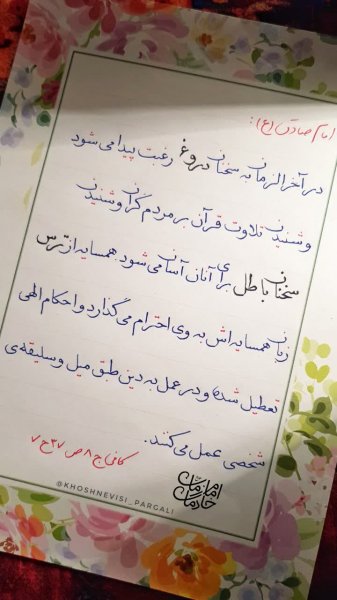 امام صادق (ع):
در آخر الزمان به سخنان دروغ رغبت پیدا می شود
و شنیدن تلاوت قرآن بر مردم گران و شنیدن
سخنان باطل برای آنان آسان می شود. همسایه از ترس
زبان همسایه اش به وی احترام می گذارد و احکام الهی
تعطیل شده و در عمل به دین طبق میل و سلیقه ی
شخصی عمل می کنند.
کافی ج ۸ ص ۳۷ ح ۷
@KHOSHNEVISI_PARGALI